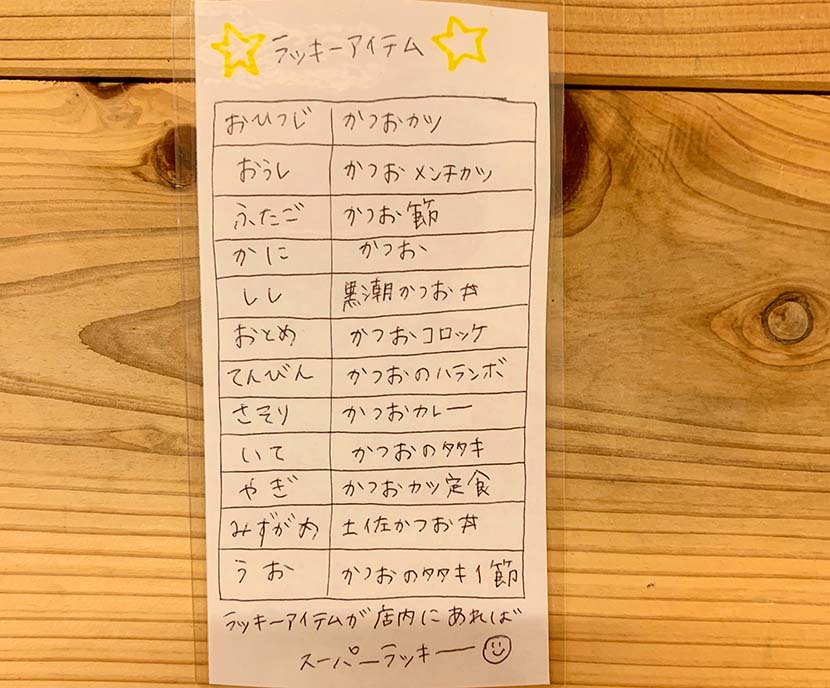 ラッキーアイテム
おひつじ かつおカツ
おうし かつおメンチカツ
ふたご かつお節
かに かつお
しし 黒潮かつお丼
おとめ かつおコロッケ
てんびん かつおのハランボ
さそり かつおカレー
いて かつおのタタキ
やぎ かつおカツ定食
みずがめ 土佐かつお丼
うお かつおのタタキ1節
ラッキーアイテムが店内にあれば
スーパーラッキー